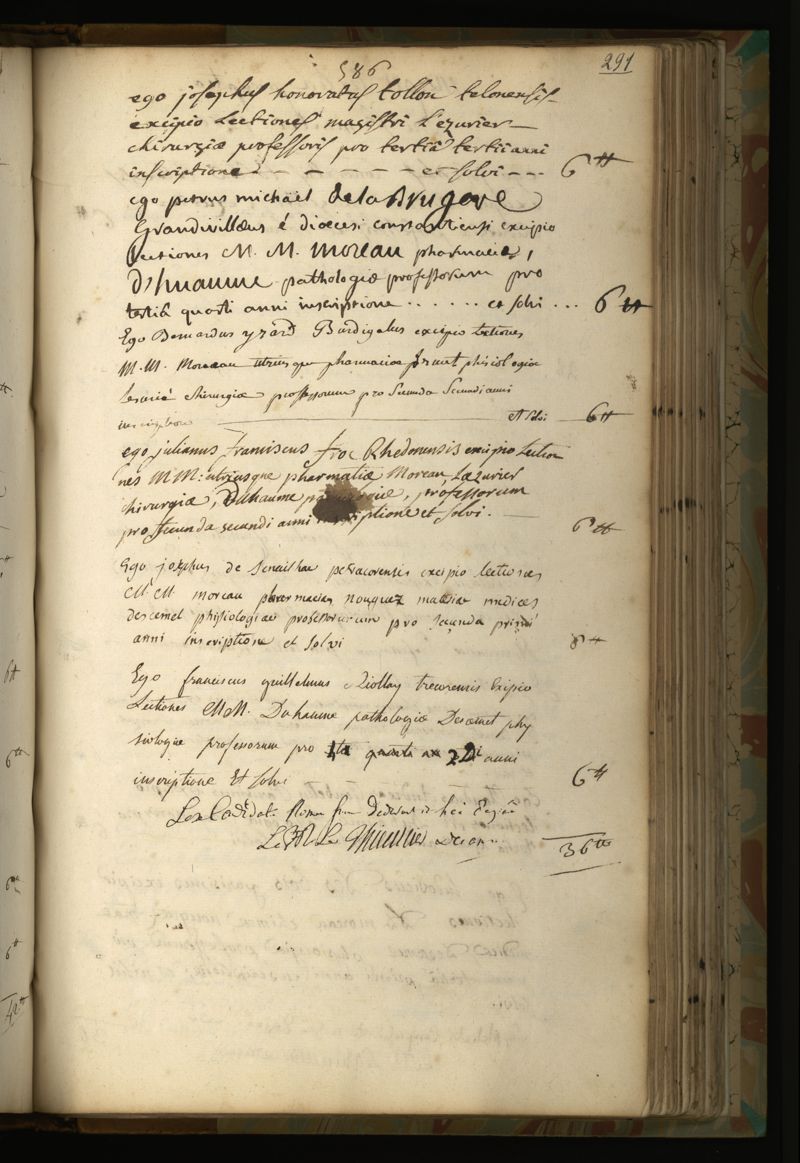 586
291
ego josephus honoratus tollon telonensis
excipio Lectiones magistri L'ezurier
chirurgiæ professoris pro tertiâ tertii anni
inscriptione - - - - - - et solvi - - - 6 ₶
ego petrus michael de la Brugere
Grandivillæus é diœcesi constantiensi excipio
Lectiones M. M. Moreau pharmaciæ,
D'huaume pathologiæ professorum pro
tertiâ quarti anni inscriptione . . . . . . et solvi . . . 6 ₶
Ego Bernardus yzard Burdigalus excipio lectiones
M. M. Moreau utriusque pharmaciæ phisiologiæ
chirurgiæ professorum pro Secunda Secundi anni
inscriptione et solvi 6 ₶
ego julianus franciscus froc Rhedonensis excipio Lectio
nes MM: utriusque pharmatiæ Moreau, Lezurier
chirurgiæ, Duhaume professorum
pro secunda secundi anni inscriptione et solvi. 6 ₶
Ego josephus de petracorensis excipio lectiones
M. M moreau pharmacias nouguez medices
descemet phisiologiae professorum pro secunda primi
anni inscriptione et solvi 6 ₶
Ego franciscus guillelmus Riollay trecorensis Excipio
Lectiones MM. Duhaume pathologiæ Descemet phy
siologiæ professorum pro quarta 2di anni
inscriptione Et solvi 6 ₶
Le Decan
36 ₶